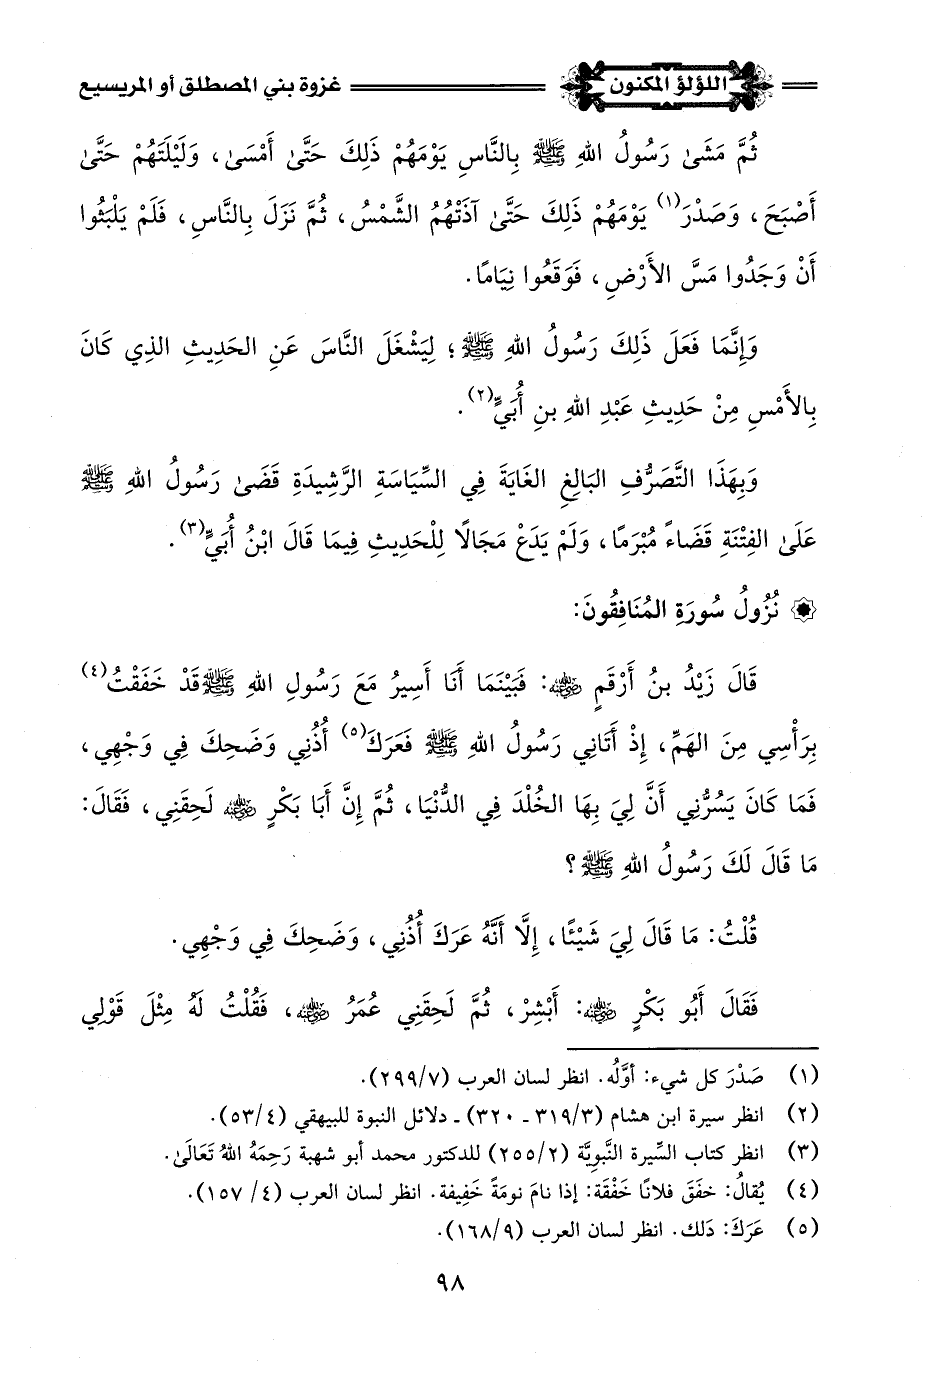 اللؤلؤ المكنون
غزوة بني المصطلق أو المريسيع
ثُمَّ مَشَىٰ رَسُولُ اللهِ ﷺ بِالنَّاسِ يَوْمَهُمْ ذَلِكَ حَتَّىٰ أَمْسَىٰ، وَلَيْلَتَهُمْ حَتَّىٰ
أَصْبَحَ، وَصَدْرَ(١) يَوْمَهُمْ ذَلِكَ حَتَّىٰ آذَتْهُمُ الشَّمْسُ، ثُمَّ نَزَلَ بِالنَّاسِ، فَلَمْ يَلْبَثُوا
أَنْ وَجَدُوا مَسَّ الأَرْضِ، فَوَقَعُوا نِيَامًا.
وَإِنَّمَا فَعَلَ ذَلِكَ رَسُولُ اللهِ ﷺ؛ لِيَشْغَلَ النَّاسَ عَنِ الحَدِيثِ الذِي كَانَ
بِالأَمْسِ مِنْ حَدِيثِ عَبْدِ اللهِ بنِ أُبَيٍّ(٢).
وَبِهَذَا التَّصَرُّفِ البَالِغِ الغَايَةَ فِي السِّيَاسَةِ الرَّشِيدَةِ قَضَىٰ رَسُولُ اللهِ ﷺ
عَلَىٰ الفِتْنَةِ قَضَاءً مُبْرَمًا، وَلَمْ يَدَعْ مَجَالًا لِلْحَدِيثِ فِيمَا قَالَ ابْنُ أُبَيٍّ(٣).
۞ نُزُولُ سُورَةِ المُنَافِقُونَ:
قَالَ زَيْدُ بنُ أَرْقَمٍ رضي الله عنه: فَبَيْنَمَا أَنَا أَسِيرُ مَعَ رَسُولِ اللهِ ﷺ قَدْ خَفَقْتُ(٤)
بِرَأْسِي مِنَ الهَمِّ، إِذْ أَتَانِي رَسُولُ اللهِ ﷺ فَعَرَكَ(٥) أُذُنِي وَضَحِكَ فِي وَجْهِي،
فَمَا كَانَ يَسُرُّنِي أَنَّ لِيَ بِهَا الخُلْدَ فِي الدُّنْيَا، ثُمَّ إِنَّ أَبَا بَكْرٍ رضي الله عنه لَحِقَنِي، فَقَالَ:
مَا قَالَ لَكَ رَسُولُ اللهِ ﷺ؟
قُلْتُ: مَا قَالَ لِيَ شَيْئًا، إِلَّا أَنَّهُ عَرَكَ أُذُنِي، وَضَحِكَ فِي وَجْهِي.
فَقَالَ أَبُو بَكْرٍ رضي الله عنه: أَبْشِرْ، ثُمَّ لَحِقَنِي عُمَرُ رضي الله عنه، فَقُلْتُ لَهُ مِثْلَ قَوْلِي
(١) صَدْرَ كل شيء: أوَّلُه. انظر لسان العرب (٢٩٩/٧).
(٢) انظر سيرة ابن هشام (٣١٩/٣ ـ ٣٢٠) ـ دلائل النبوة للبيهقي (٥٣/٤).
(٣) انظر كتاب السِّيرة النَّبوِيَّة (٢٥٥/٢) للدكتور محمد أبو شهبة رَحِمَهُ اللهُ تَعَالَىٰ.
(٤) يُقالُ: خفَقَ فلانًا خَفْقَة: إذا نامَ نومَةً خَفِيفة. انظر لسان العرب (٤/ ١٥٧).
(٥) عَرَكَ: دَلك. انظر لسان العرب (١٦٨/٩).
٩٨